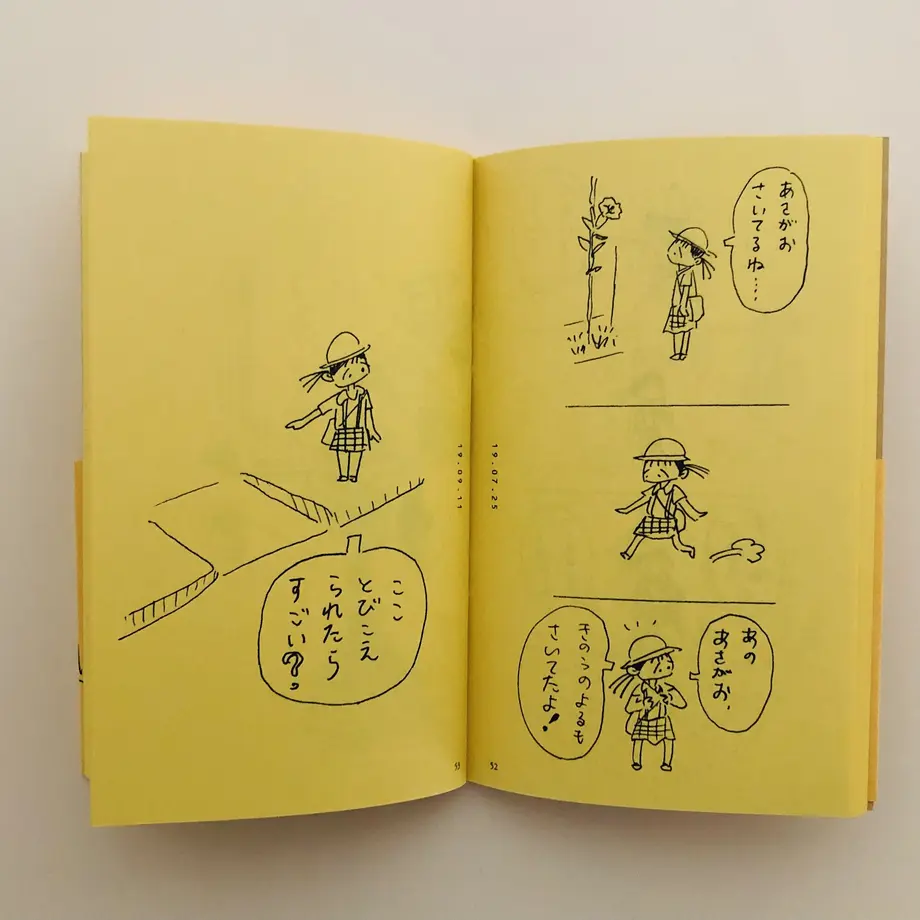 あさがお
さいてるね….
あの
あさがお、
きのうのよるも
さいてたよ!
19.07.25
52
ここ
とびこえ
られたら
すごい?
19.09.11
53